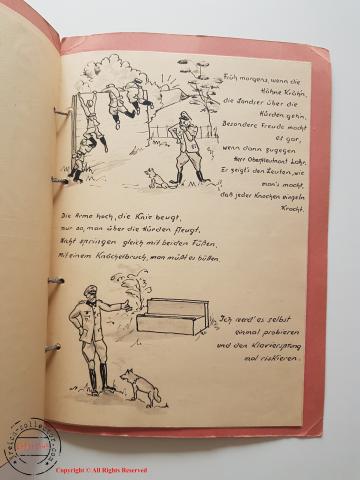 Früh morgens, wenn die
Hähne Krähn,
die Landser über die
Hürden gehn,
Besondere Freude macht
es gar,
wenn dann zugegen
Herr Oberleutnant Lahr.
Er zeigt's den Leuten, wie
man's macht,
daß jeder Knochen einzeln
Kracht.
Die Arme hoch, die Knie beugt,
nur so, man über die Hürden fleugt.
Nicht springen gleich mit beiden Füßen,
Mit einem Knöchelbruch, man müßt es büßen.
Ich werd' es selbst
einmal probieren
und den Klaviersprung
mal riskieren.
Copyright © All Rights Reserved